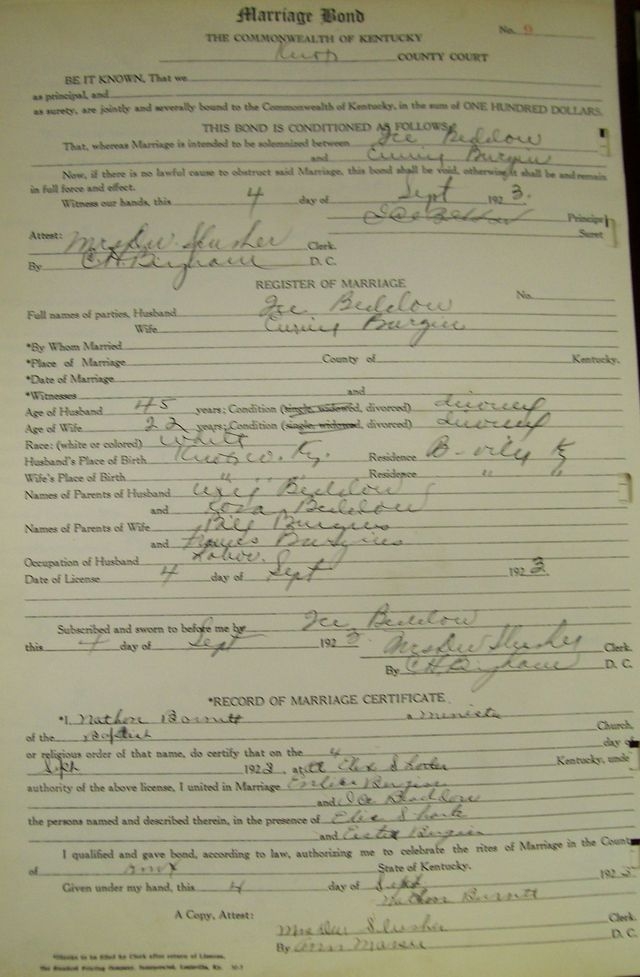 Marriage Bond
No. 9
THE COMMONWEALTH OF KENTUCKY
Knox COUNTY COURT
BE IT KNOWN, That we
as principal, and
as surety, are jointly and severally bound to the Commonwealth of Kentucky, in the sum of ONE HUNDRED DOLLARS.
THIS BOND IS CONDITIONED AS FOLLOWS:
That, whereas Marriage is intended to be solemnized between Ice Beddow
and Burgin
Now, if there is no lawful cause to obstruct said Marriage, this bond shall be void, otherwise it shall be and remain
in full force and effect.
Witness our hands, this 4 day of Sept 1923.
Ice Beddow Principal
Suret
Attest: Mrs D.W. Slusher Clerk.
By C.H. Bingham D. C.
REGISTER OF MARRIAGE
No.
Full names of parties, Husband Ice Beddow
Wife Burgin
*By Whom Married
*Place of Marriage County of Kentucky.
*Date of Marriage
*Witnesses and
Age of Husband 45 years; Condition (single, widowed, divorced) divorced
Age of Wife 22 years; Condition (single, widowed, divorced) divorced
Race: (white or colored) White
Husband's Place of Birth Knox Co. Ky. Residence B-ville Ky
Wife's Place of Birth " " " Residence " "
Names of Parents of Husband Beddow
and Beddow
Names of Parents of Wife Bill Burgins
and Burgins
Occupation of Husband Labor.
Date of License 4 day of Sept 1923.
Subscribed and sworn to before me by Ice Beddow
this 4 day of Sept 1923. Mrs D.W. Slusher Clerk.
By C.H. Bingham D. C.
*RECORD OF MARRIAGE CERTIFICATE.
*I, Nathon Barnett a Minister
of the Baptist Church,
or religious order of that name, do certify that on the 4 day of
Sept 1923, at Kentucky, unde
authority of the above license, I united in Marriage Burgin
and Ice Beddow
the persons named and described therein, in the presence of
and Burgin
I qualified and gave bond, according to law, authorizing me to celebrate the rites of Marriage in the Count
of Knox State of Kentucky.
Given under my hand, this 4 day of Sept 1923.
Nathon Burnett
A Copy, Attest:
Mrs D.W. Slusher Clerk.
By D. C.
*Blanks to be filled by Clerk after return of License.